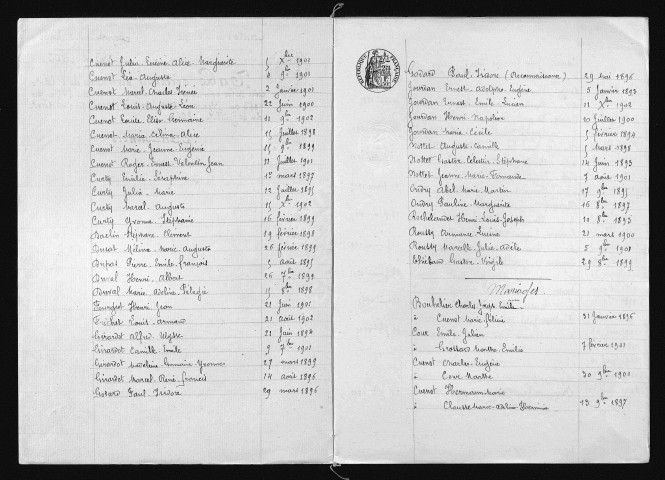 Cuenot Julia Lucine Alice Marguerite 15 Xbre 1901
Cuenot Léa Augusta 4 9bre 1901
Cuenot Marcel Charles 2 janvier 1901
Cuenot Louis Auguste Léon 22 juin 1900
Cuenot Louise Elise Germaine 12 9bre 1902
Cuenot Maria Celina Alice 15 juillet 1898
Cuenot Marie Jeanne Eugénie 15 9bre 1899
Cuenot Roger Ernest Valentin Jean 31 juillet 1901
Curty Emilie Séraphine 1er mars 1897
Curty Julia Marie 12 juillet 1895
Curty Marcel Auguste 15 Xbre 1902
Curty Yvonne Stéphanie 16 février 1899
Stéphane Clément 19 février 1898
Mélina Marie Augusta 26 février 1899
Dupas Pierre Emile François 5 août 1895
Duval Henri Albert 26 7bre 1899
Duval Marie Adeline Pélagie 15 8bre 1898
Henri Jean 21 juin 1901
Louis Armand 21 août 1902
Girardot Alfred Ulysse 21 juin 1894
Girardot Camille Emile 9 7bre 1901
Girardot Germaine Yvonne 27 mars 1899
Girardot Marcel René François 14 août 1896
Godard Paul Isidore 29 mars 1896
RÉPUBLIQUE FRANÇAISE
Godard Paul Isidore (Reconnaissance) 29 mai 1896
Jourdan Ernest Adolphe Eugène 5 janvier 1893
Jourdan Ernest Emile Lucien 11 Xbre 1902
Jourdan Henri Napoléon 20 juillet 1900
Jourdan Marie Cécile 5 février 1894
Nottot Auguste Camille 5 mars 1898
Nottot Gaston Célestin Stéphane 14 juin 1893
Nottot Jeanne Marie Fernande 7 août 1901
Ordry Abel Marie Martin 17 9bre 1895
Ordry Pauline Marguerite 16 8bre 1897
Rochelandet Henri Louis Joseph 10 8bre 1893
Roussy Armance Lucine 21 mars 1900
Roussy Marcelle Julia Adèle 5 9bre 1901
Gaston Virgile 29 8bre 1899
Mariages
Bouhelier Charles Emile
à Cuenot Marie 31 janvier 1895
Cour Emile Julien
à Marthe Emilie 7 février 1901
Cuenot Charles Eugène
à Cour Marthe 30 9bre 1900
Cuenot Hermann Marie
à Marie Adeline Herminie 13 9bre 1897